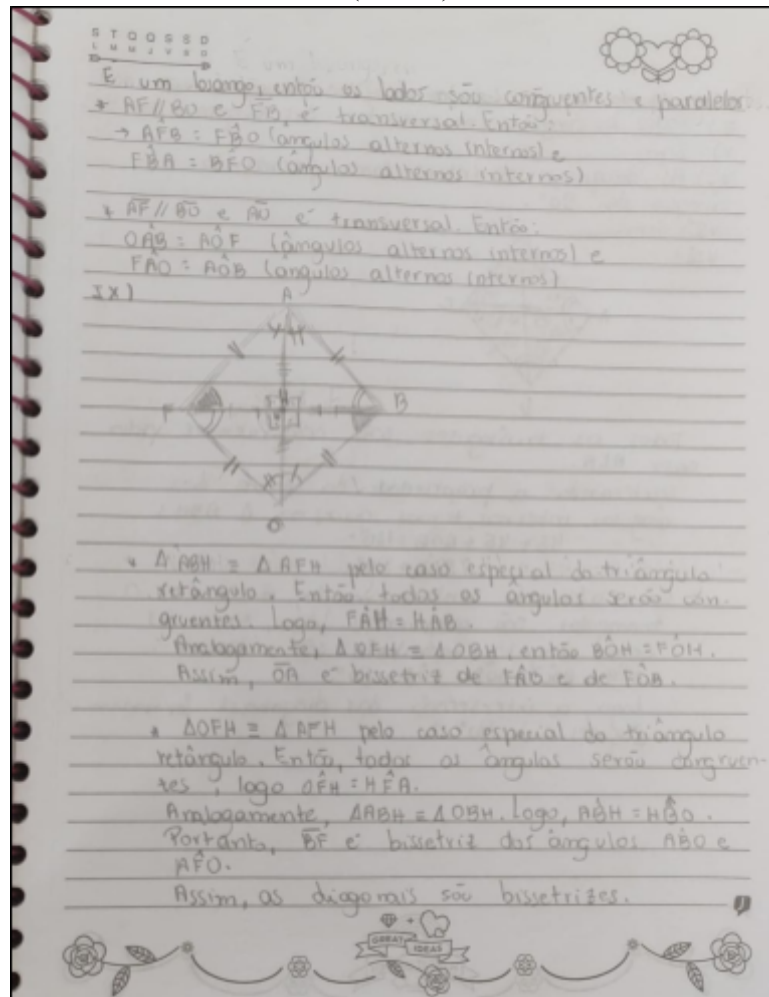 S T Q Q S S D
L M M J V S D
É um losango, então os lados são congruentes e paralelos.
* AF//BO e FB, é transversal. Então:
→ AF̂B = FB̂O (ângulos alternos internos) e
FB̂A = BF̂O (ângulos alternos internos)
* AF//BO e AO é transversal. Então:
OÂB = AÔF (ângulos alternos internos) e
FÂO = AÔB (ângulos alternos internos)
IX)
A
F
H
B
O
* Δ ABH ≡ Δ AFH pelo caso especial do triângulo
retângulo. Então todos os ângulos serão con-
gruentes. Logo, FÂH = HÂB.
Analogamente, Δ OFH ≡ Δ OBH, então BÔH = FÔH.
Assim, OA é bissetriz de FÂB e de FÔB.
* ΔOFH ≡ Δ AFH pelo caso especial do triângulo
retângulo. Então, todos os ângulos serão congruen-
tes, logo OF̂H = HF̂A.
Analogamente, ΔABH ≡ ΔOBH. Logo, AB̂H = HB̂O.
Portanto, BF é bissetriz dos ângulos AB̂O e
AF̂O.
Assim, as diagonais são bissetrizes.
GREAT IDEAS